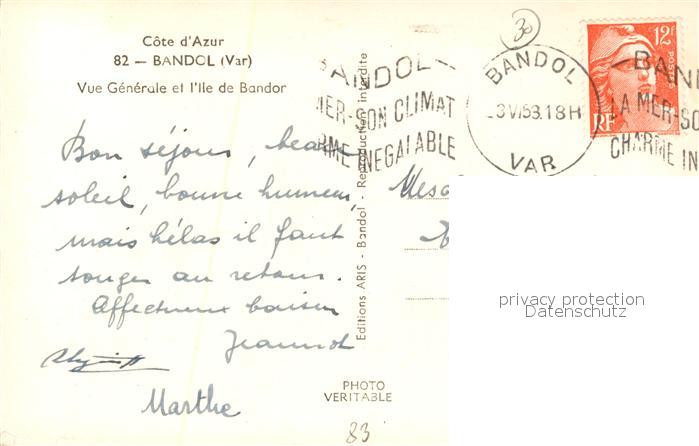 Côte d'Azur
82 — BANDOL (Var)
Vue Générale et l'Ile de Bandor
Bon séjour, beau
soleil, bonne humeur,
mais hélas il faut
songer au retour.
Affectueux baisers
Jeannot
Marthe
PHOTO
VERITABLE
83
Editions ARIS - Bandol - Reproduction interdite
30
BANDOL
MER-SON CLIMAT
RME INEGALABLE
BANDOL
3 VI 53. 18H
VAR
12F
RF
BAN
LA MER-SO
CHARME IN
privacy protection
Datenschutz